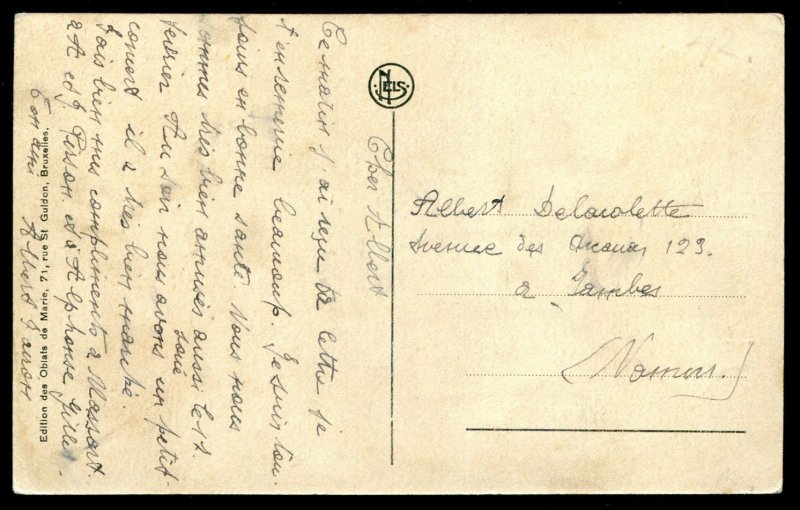 Cher Albert
Ce matin j'ai reçu ta lettre je
t'en remercie beaucoup. Je suis tou-
jours en bonne santé. Nous nous
sommes très bien amusés aussi le 12
février Au soir nous avons un petit
joué
concert il a très bien marché.
Fais bien mes compliments à Massart.
2A et J. Pirson et à Alphonse Gillet.
Ton ami Albert
NELS
Edition des Oblats de Marie, 71, rue St Guidon, Bruxelles.
Albert Delacolette
Avenue des 123.
à Jambes
(Namur.)
42.